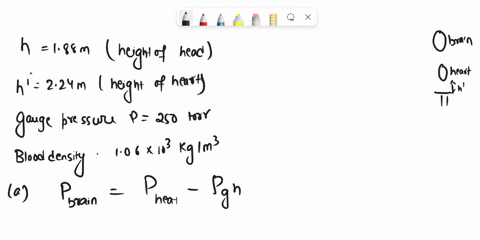 h = 1.88m (height of head)
h' = 2.24m (height of heart)
gauge pressure P = 250 torr
Blood density . 1.06 × 10³ Kg/m³
(a) P brain = P heat - ρgh
brain
heart
h'